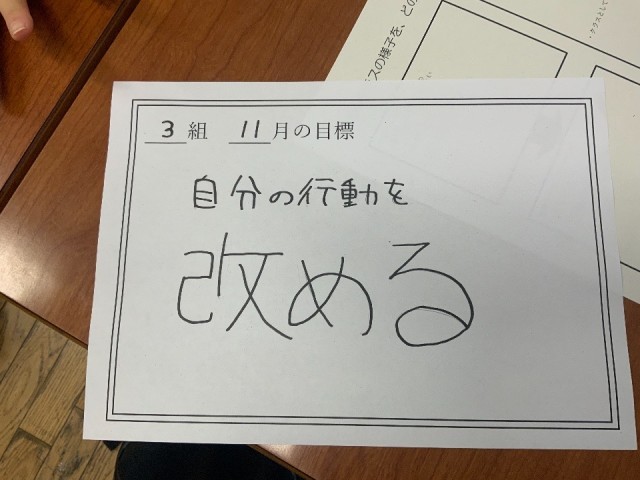 3組 11月の目標
自分の行動を
改める
スの様子を、ど